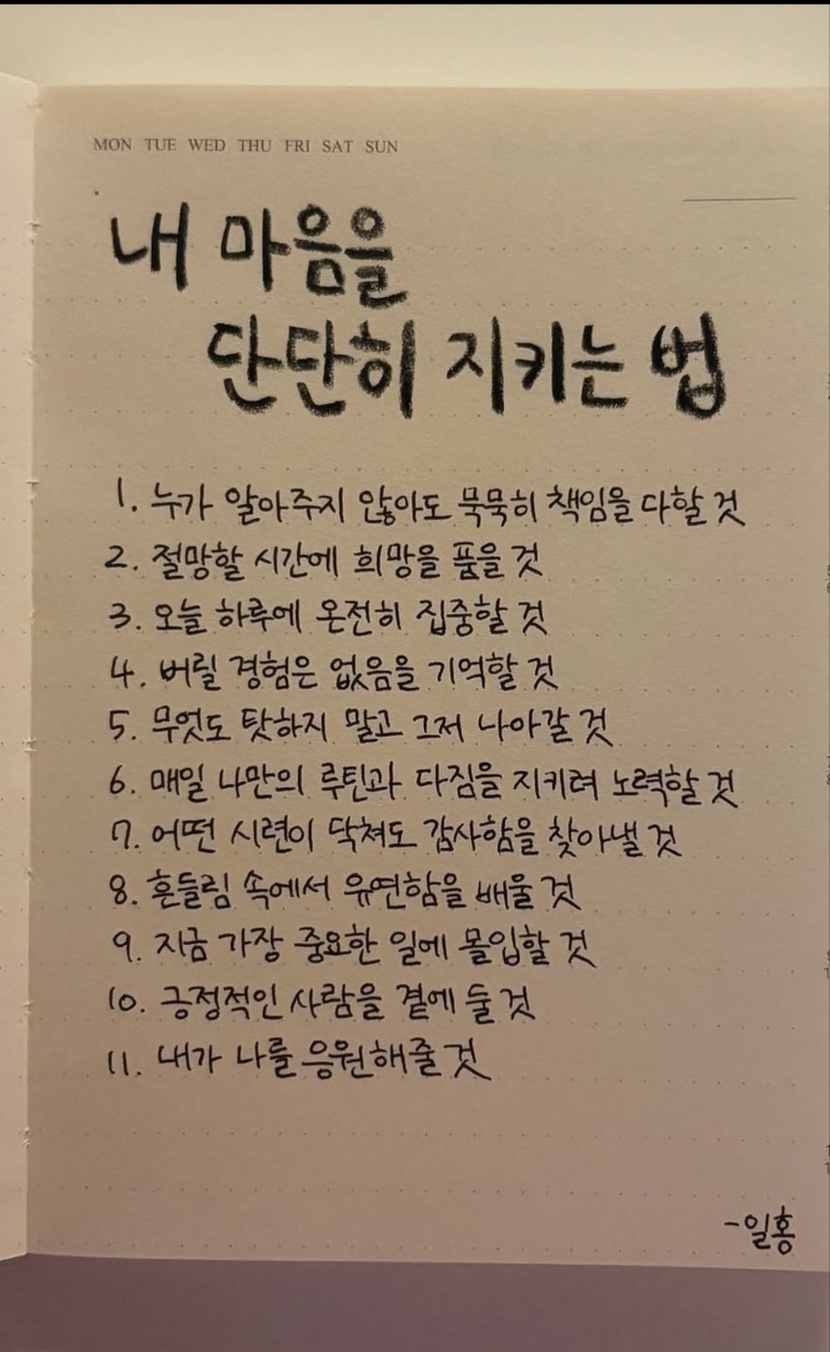 MON TUE WED THU FRI SAT SUN
내 마음을
단단히 지키는 법
1. 누가 알아주지 않아도 묵묵히 책임을 다할 것
2. 절망할 시간에 희망을 품을 것
3. 오늘 하루에 온전히 집중할 것
4. 버릴 경험은 없음을 기억할 것
5. 무엇도 탓하지 말고 그저 나아갈 것
6. 매일 나만의 루틴과 다짐을 지키려 노력할 것
7. 어떤 시련이 닥쳐도 감사함을 찾아낼 것
8. 흔들림 속에서 유연함을 배울 것
9. 지금 가장 중요한 일에 몰입할 것
10. 긍정적인 사람을 곁에 둘 것
11. 내가 나를 응원해줄 것
-일홍